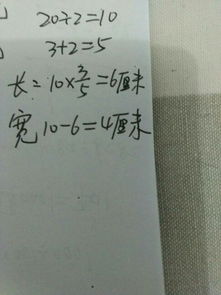 20÷2=10
3+2=5
长=10×3/5=6厘米
宽 10-6=4厘米